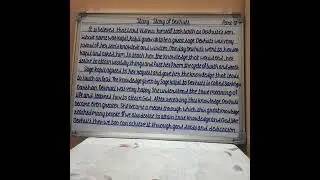 Story Story of Devhuti
It is believed that Lord Vishnu himself took birth as Devhuti's son,
whose name was Kapil. Kapil grew up to be a great sage. Devhuti was very
proud of her son's knowledge and wisdom. One day Devhuti went to her son
Kapil and asked him to teach her the knowledge that would end her
desire to attain worldly things and free her from the cycle of birth and death.
Sage Kapil agreed to her request and gave her the knowledge that leads
to truth and God. The knowledge given by Sage Kapil to Devhuti is called Sankhya
Darshan. Devhuti was very happy. She understood the true meaning of
life and learned how to attain God. After receiving this knowledge Devhuti
became even greater. She became a means through which this great knowledge
reached many people. If we also desire to attain true knowledge and God like
Devhuti, then we too can achieve it through good deeds and dedication.